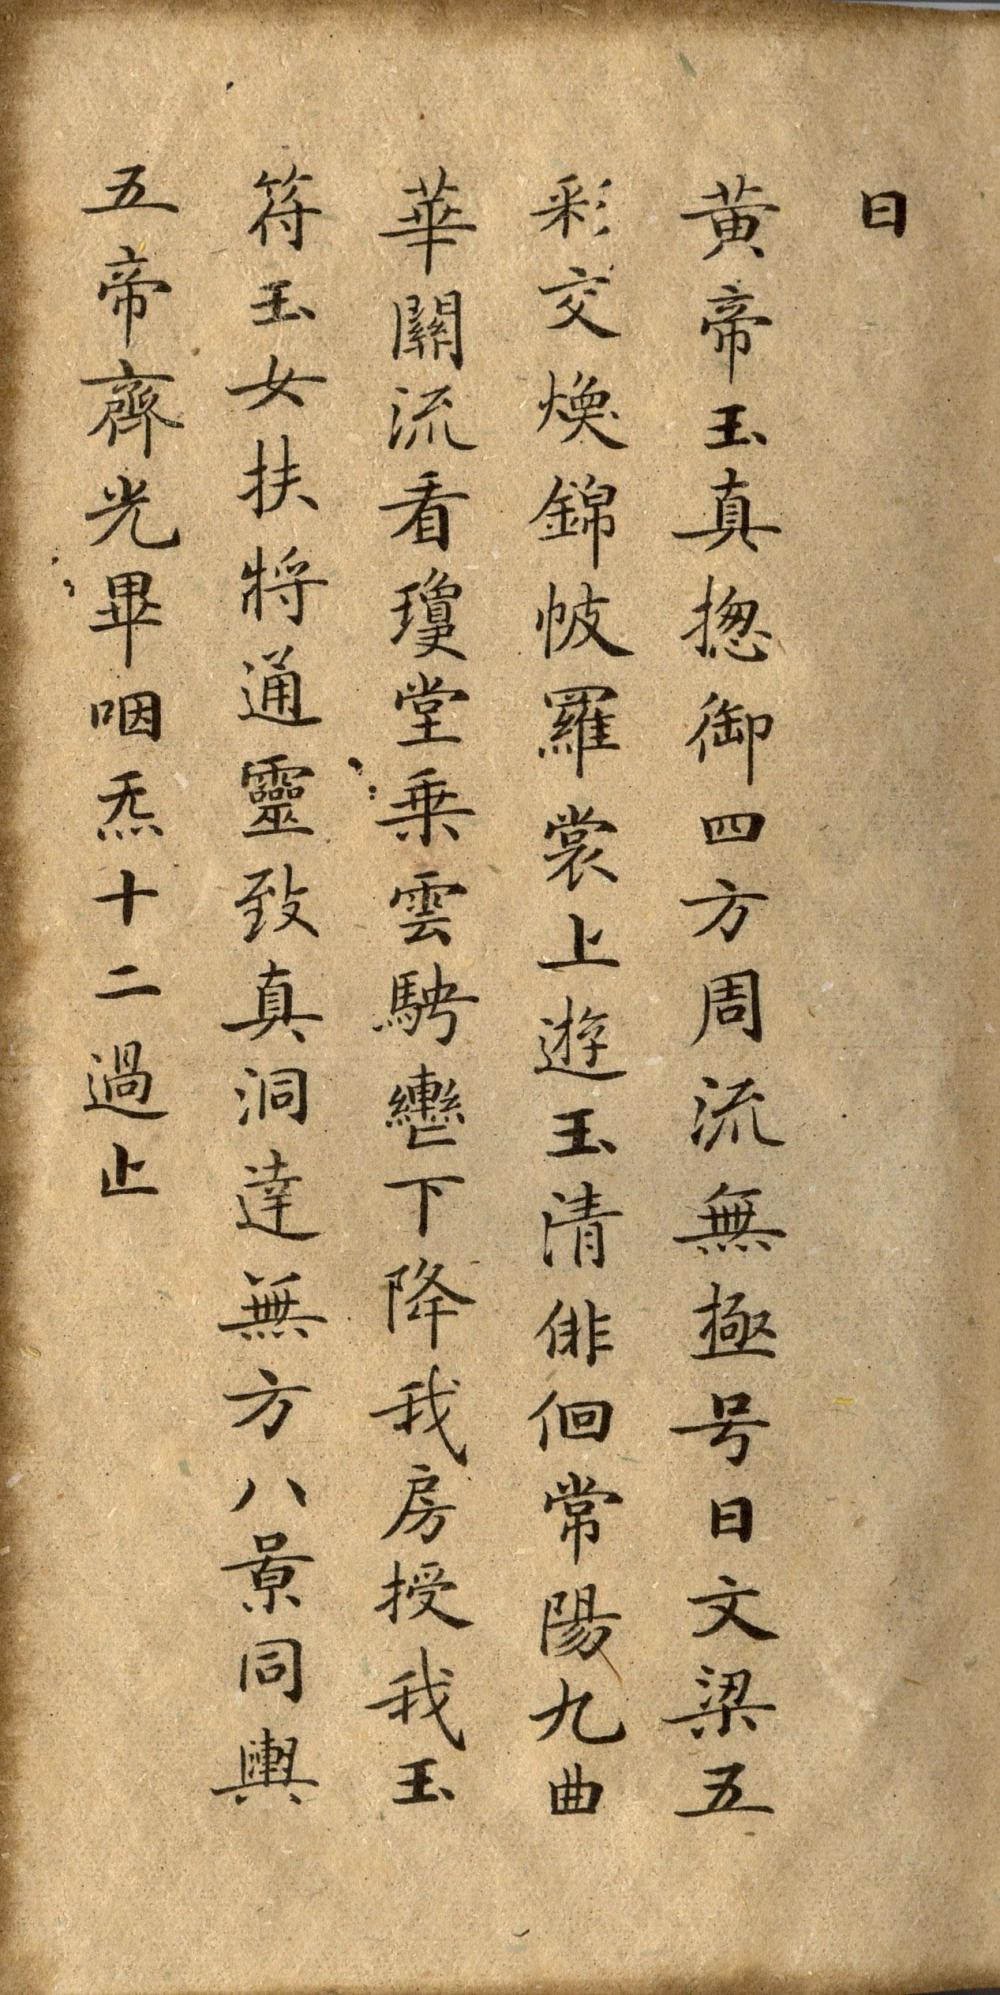 曰
黄帝玉真揔御四方周流無極号曰文梁五
彩交煥錦帔羅裳上遊玉清俳佪常陽九曲
華關流看瓊堂乗雲騁轡下降我房授我玉
符玉女扶將通靈致真洞達無方八景同輿
五帝齊光畢咽炁十二過止